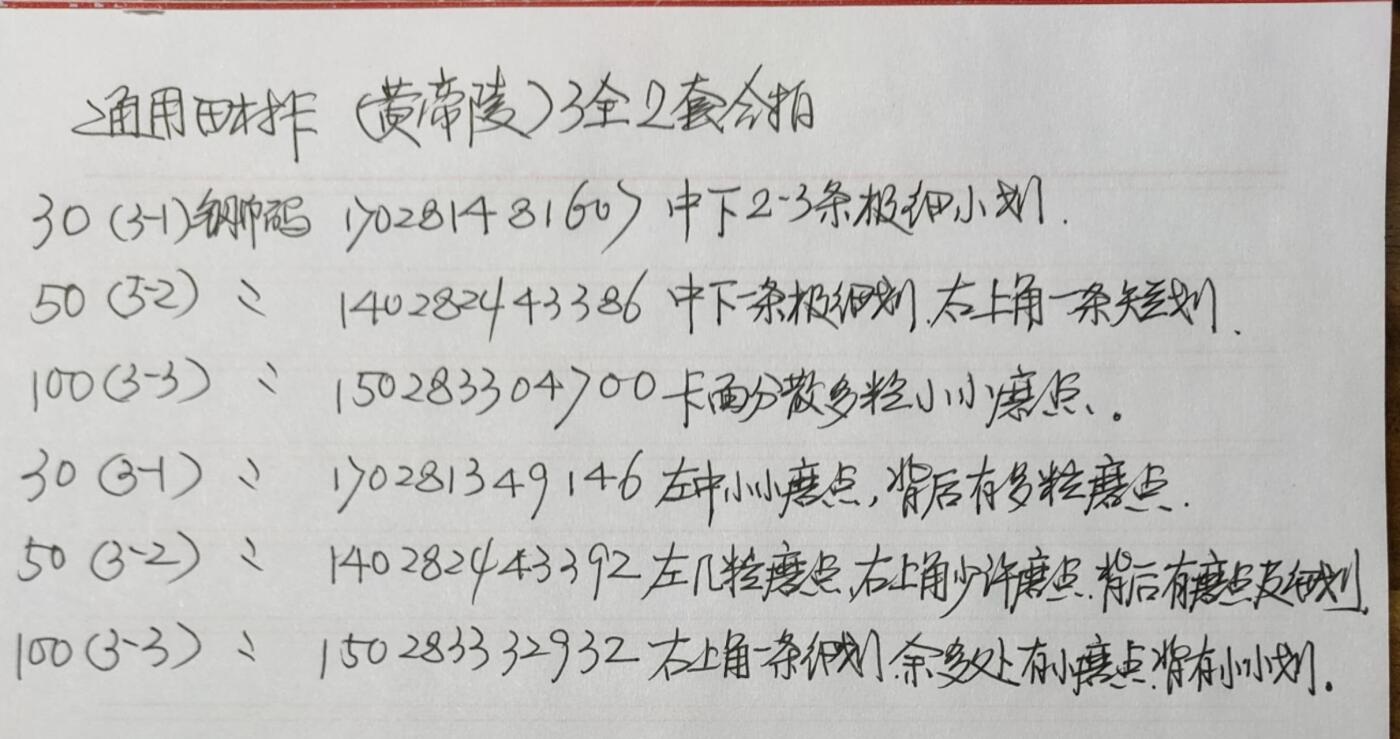 通用田村卡 (黄帝陵) 3全2套合拍
30 (3-1) 钢印码 170281481607 中下2-3条极细小划.
50 (3-2) 〃 140282443386 中下一条极细划.右上角一条短划.
100 (3-3) 〃 150283304700 卡面分散多粒小小磨点、。
30 (3-1) 〃 170281349146 左中小小磨点,背后有多粒磨点.
50 (3-2) 〃 140282443392 左几粒磨点,右上角少许磨点.背后有磨点及细划.
100 (3-3) 〃 150283332932 右上角一条细划.余多处有小磨点.背有小小划.